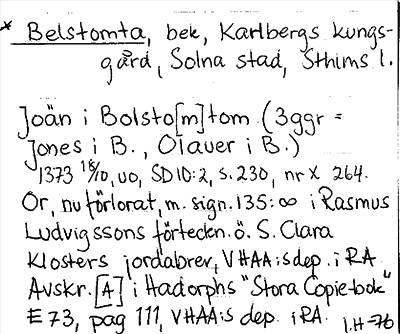 * Belstomta, bek, Karlbergs kungs-
gård, Solna stad, Sthlms l.
Joän i Bolsto[m]tom (3ggr =
Jones i B., Olauer i B.)
1373 18/10, uo, SD10:2, s. 230, nr X 264.
Or, nu förlorat, m. sign. 135:∞ i Rasmus
Ludvigssons förteckn. ö. S. Clara
Klosters jordabrev, VHAA:s dep. i RA
Avskr. [A] i Hadorphs "Stora Copie-bok"
E 73, pag 111, VHAA:s dep. i RA. I.H-76